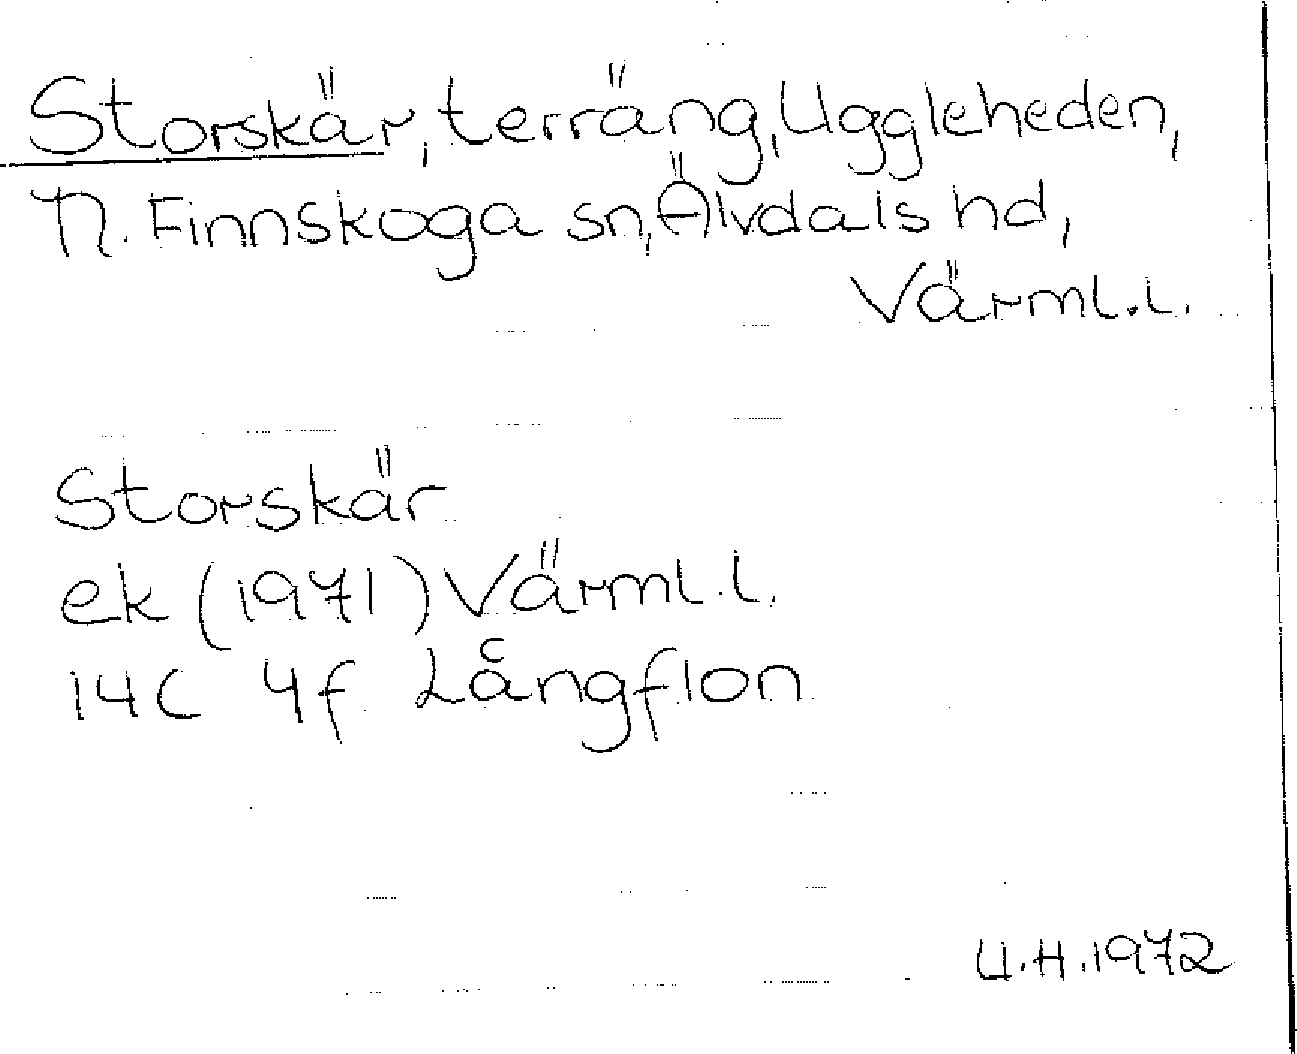 Storskär, terräng, Uggleheden,
N. Finnskoga sn, Älvdals hd,
Värml. l.
Storskär
ek (1971) Värml. l.
14C 4f Långflon
U.H. 1972